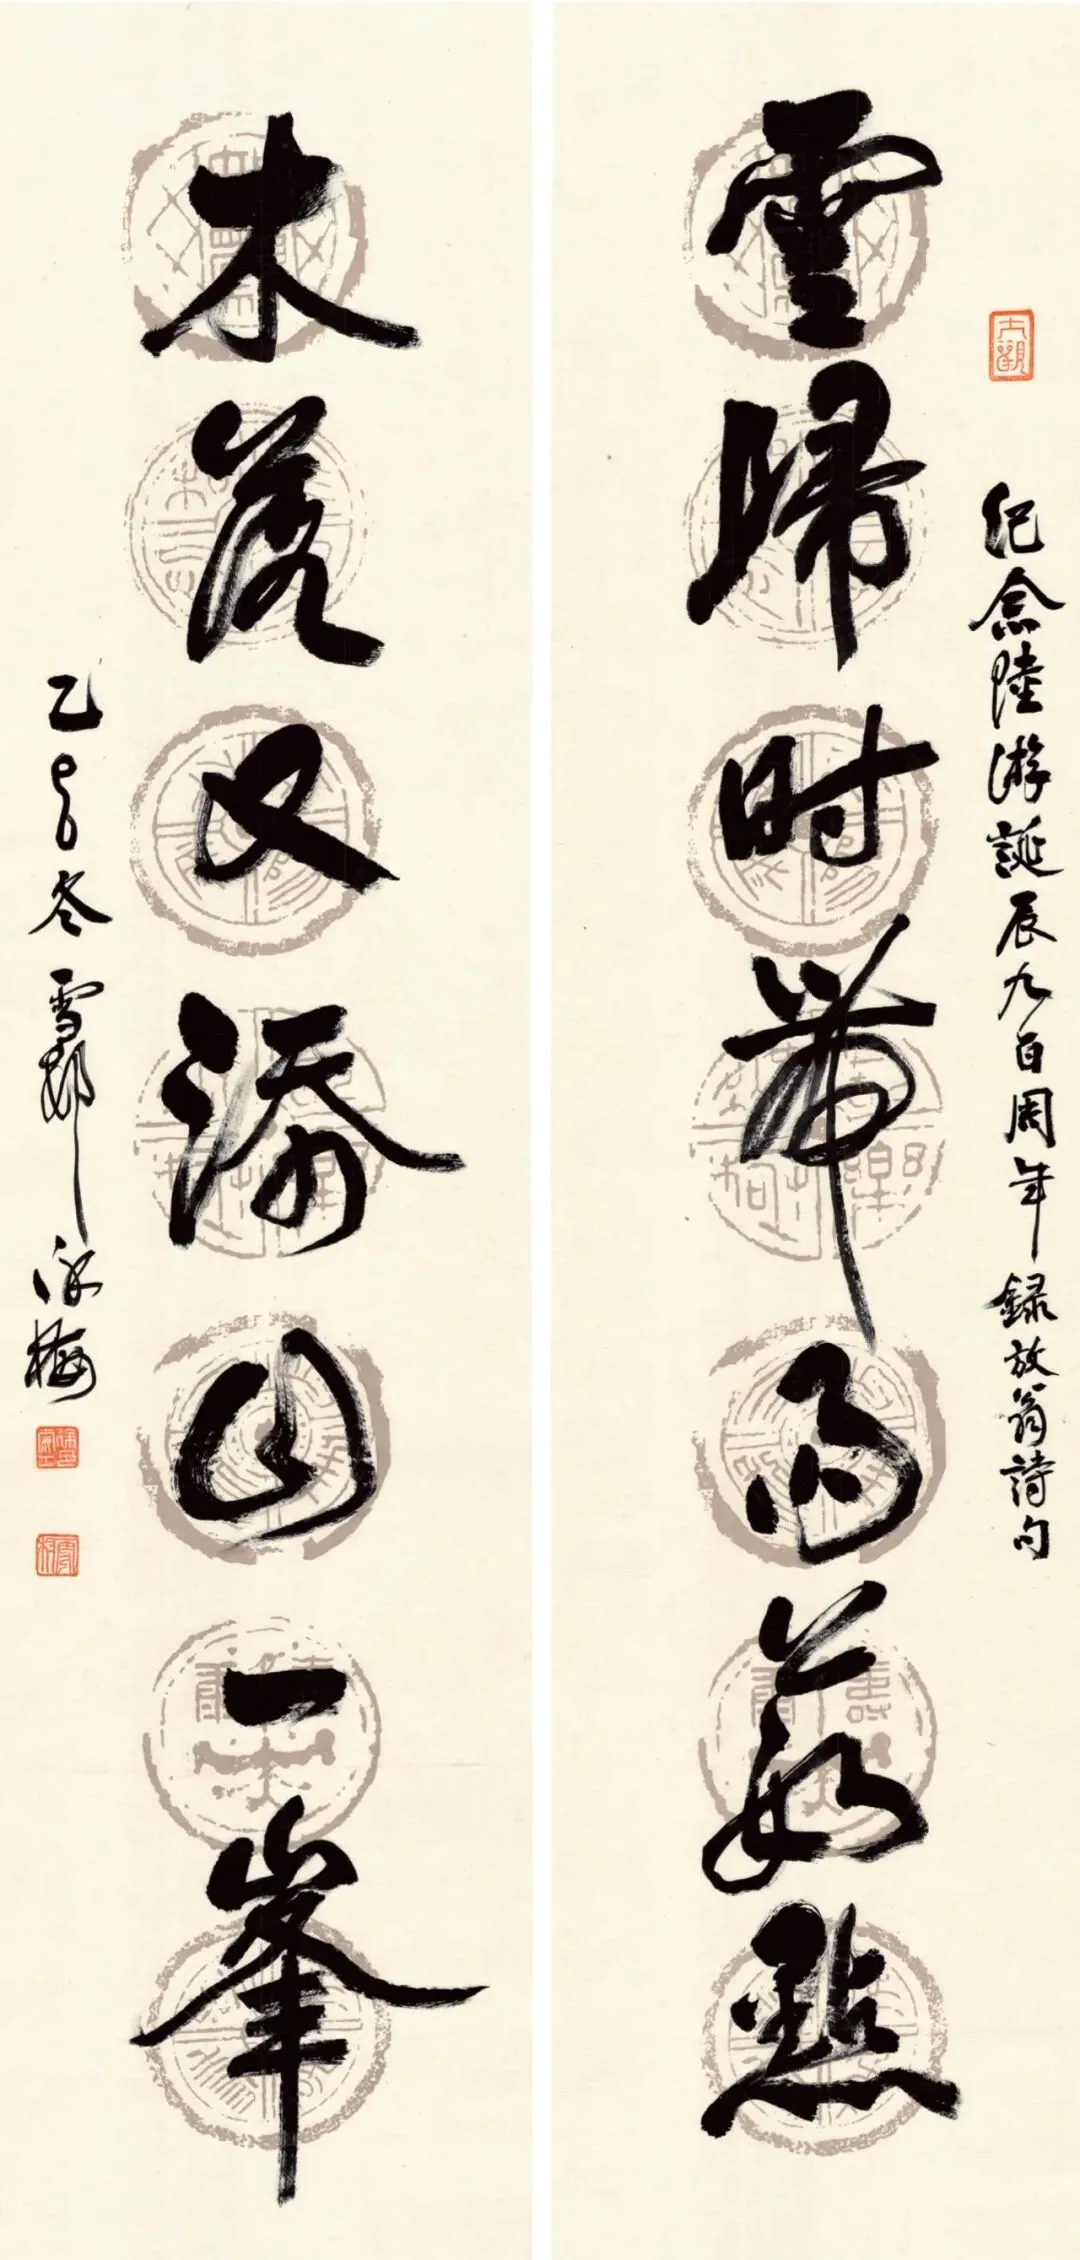 紀念陸游誕辰九百周年錄放翁詩句
雲歸时帶雨數點
木落又添山一峯
乙巳冬雪邨